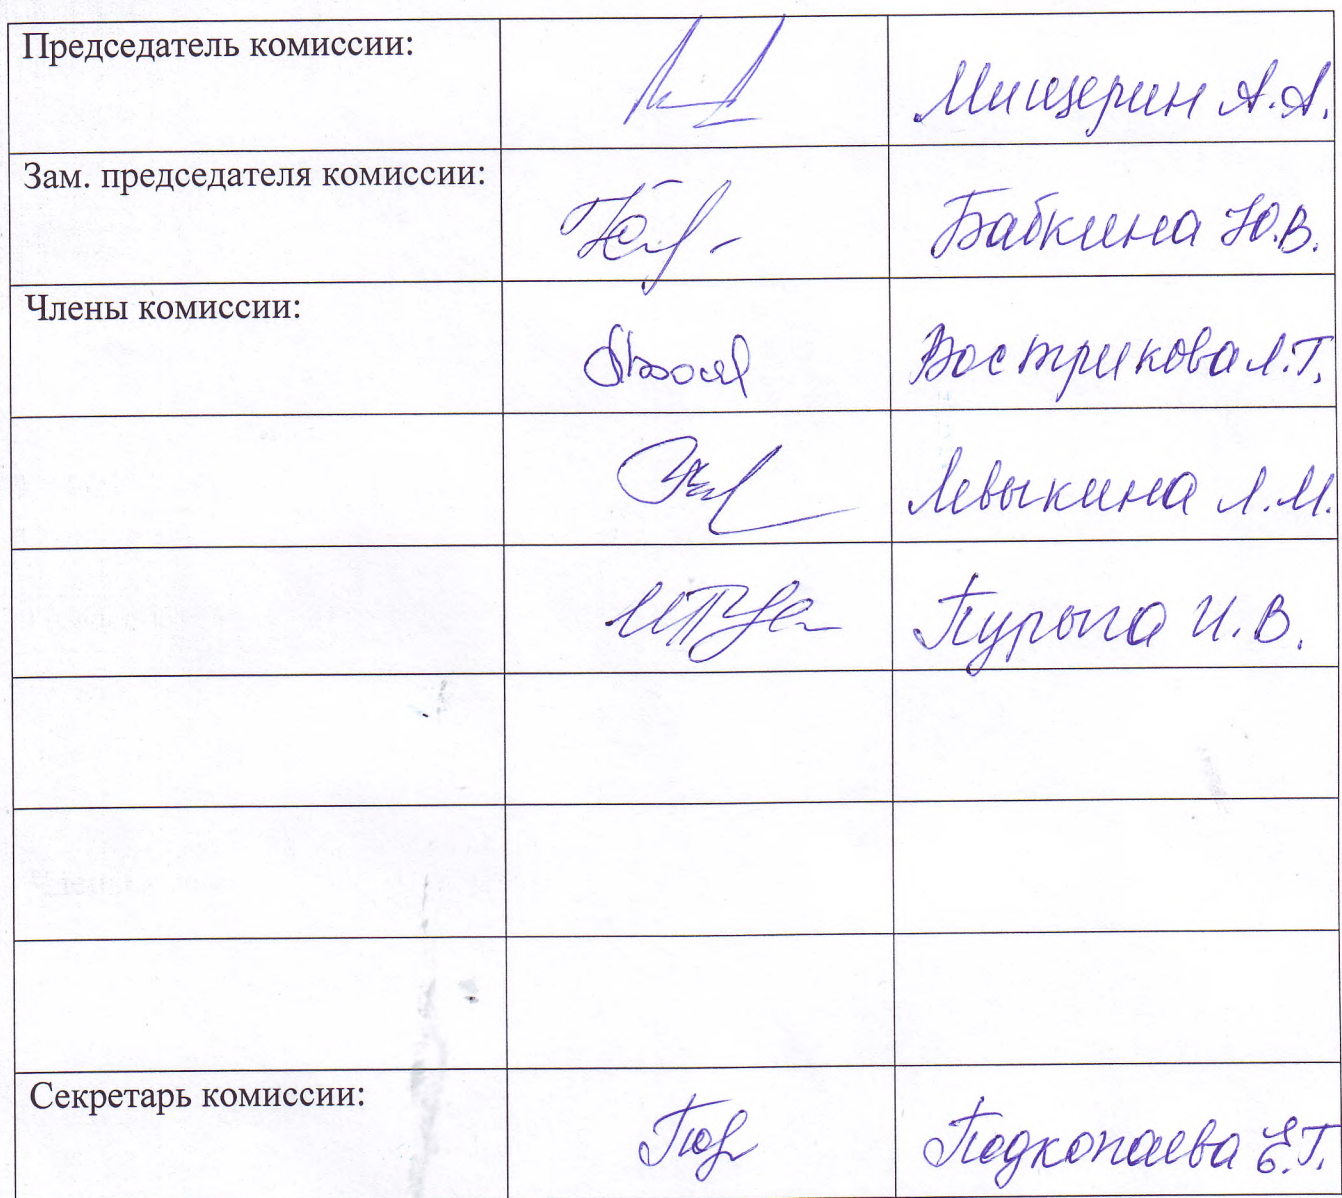 Председатель комиссии: Мищерин А.А.
Зам. председателя комиссии: Бабкина Ю.В.
Члены комиссии: Вострикова Л.Т.
Левыкина Л.М.
Пурыга И.В.
Секретарь комиссии: Подкопаева Е.Г.